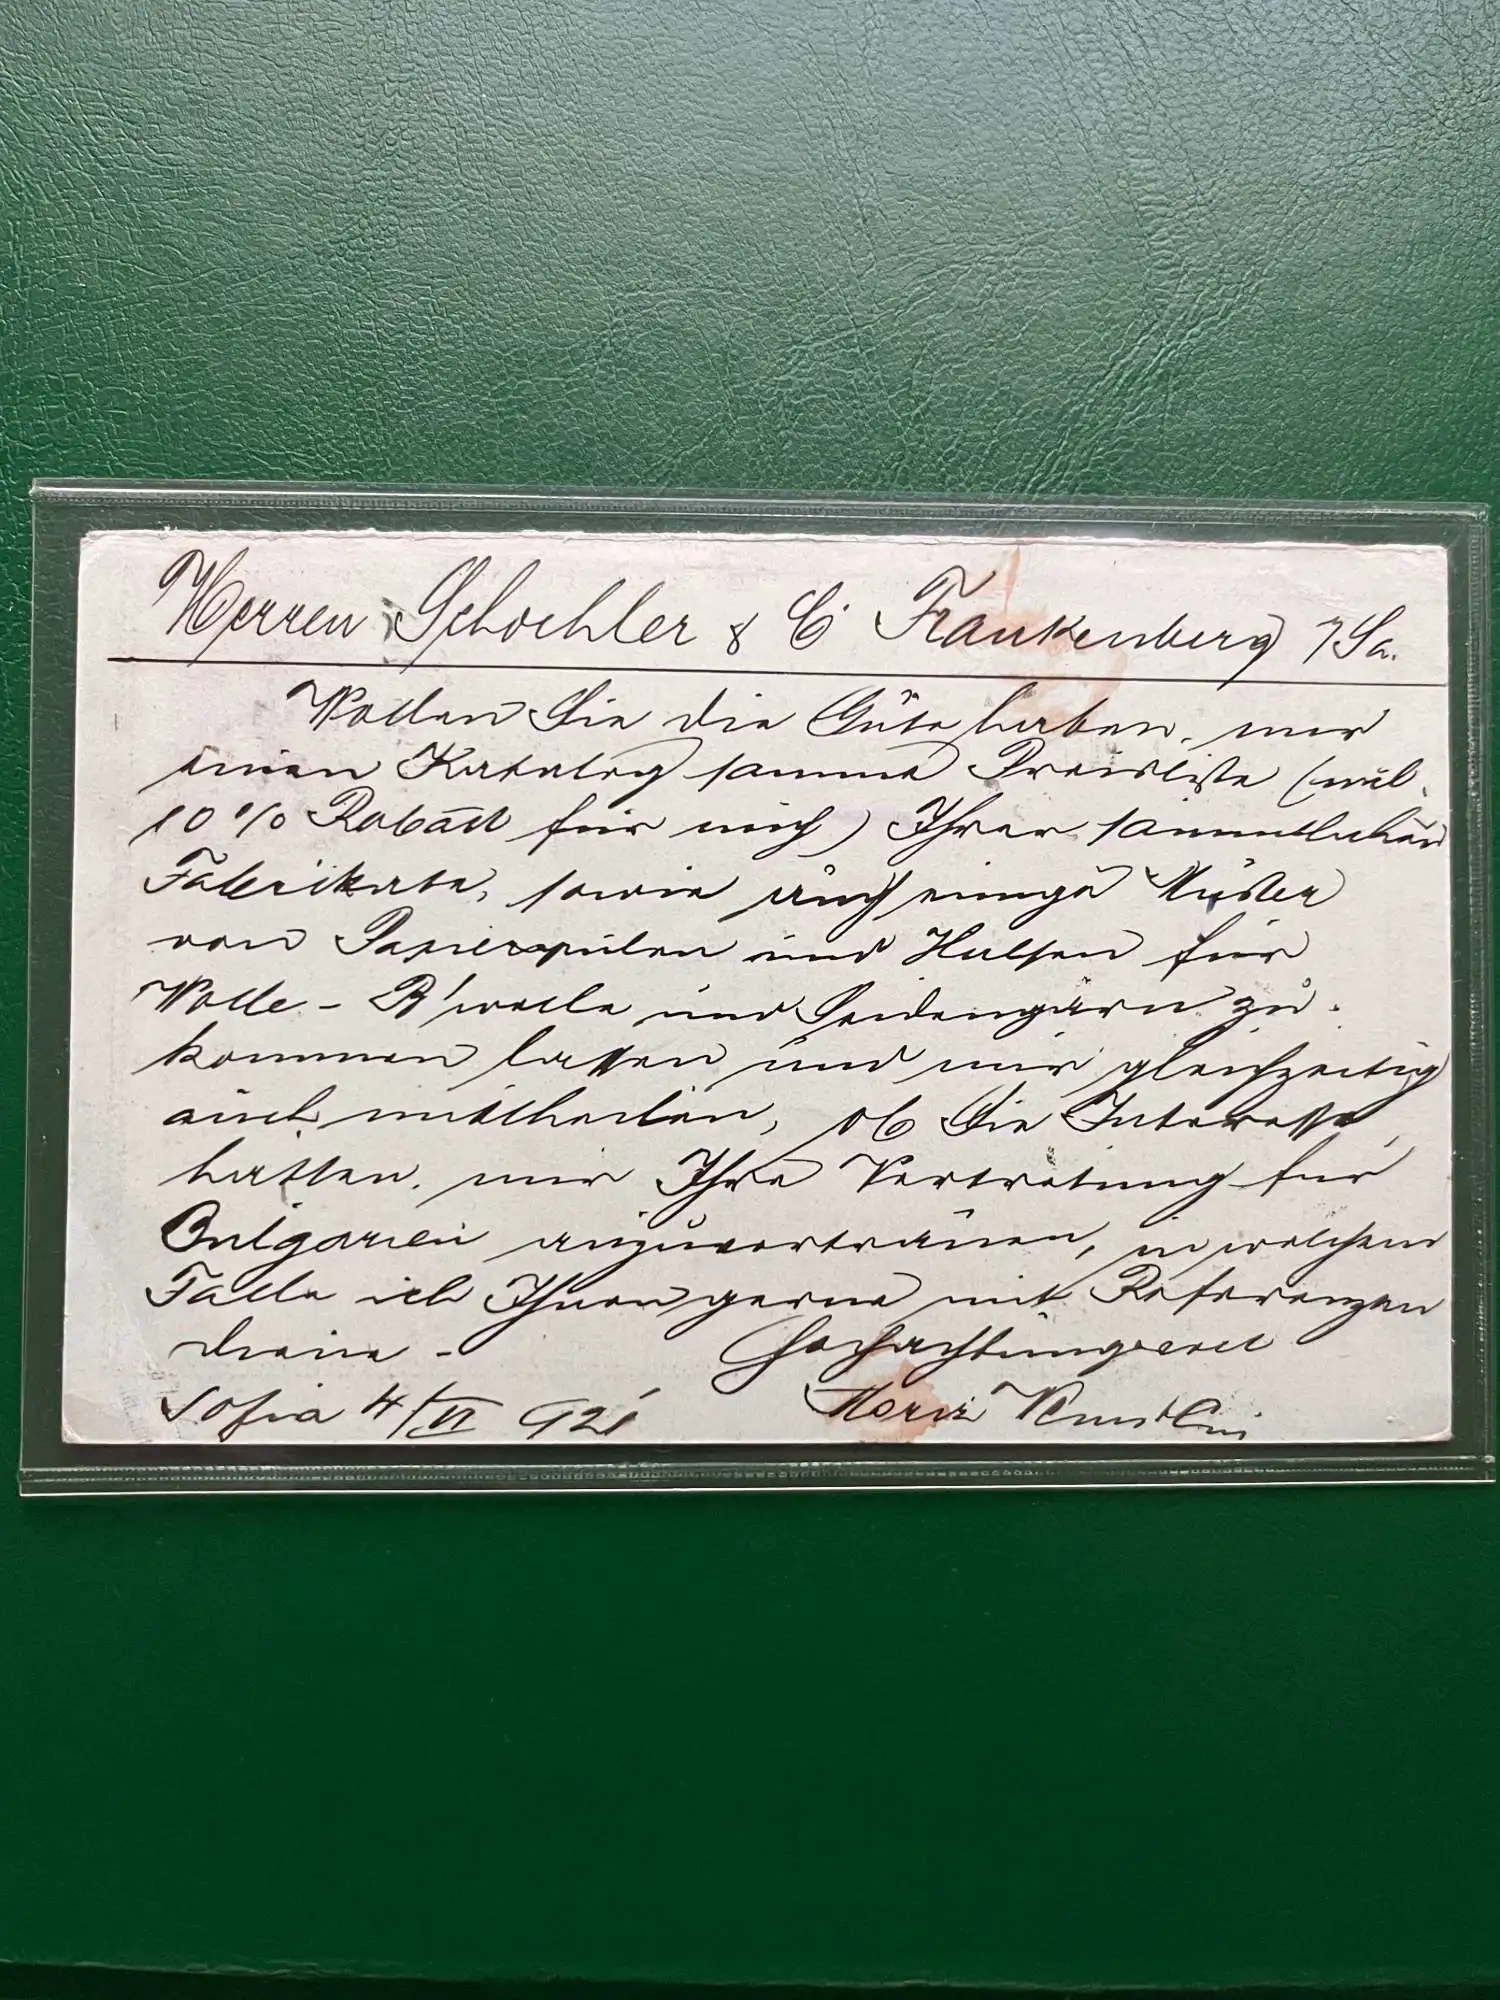 Herren Schochler & C° Frankenberg i/Sa.
Wollen Sie die Güte haben, mir
einen Katalog sammt Preisliste (inkl.
10% Rabatt für mich) Ihrer sammtlichen
Fabrikate, sowie auch einige Muster
von Papierspulen und Hulsen für
Wolle - B'wolle und Seidengarn zu-
kommen lassen und mir gleichzeitig
auch mittheilen, ob Sie Interesse
hatten, mir Ihre Vertretung für
Bulgarien anzuvertrauen, in welchem
Falle ich Ihnen gerne mit Referenzen
diene -
Hochachtungsvoll
Sofia 4/VI 921
Moriz